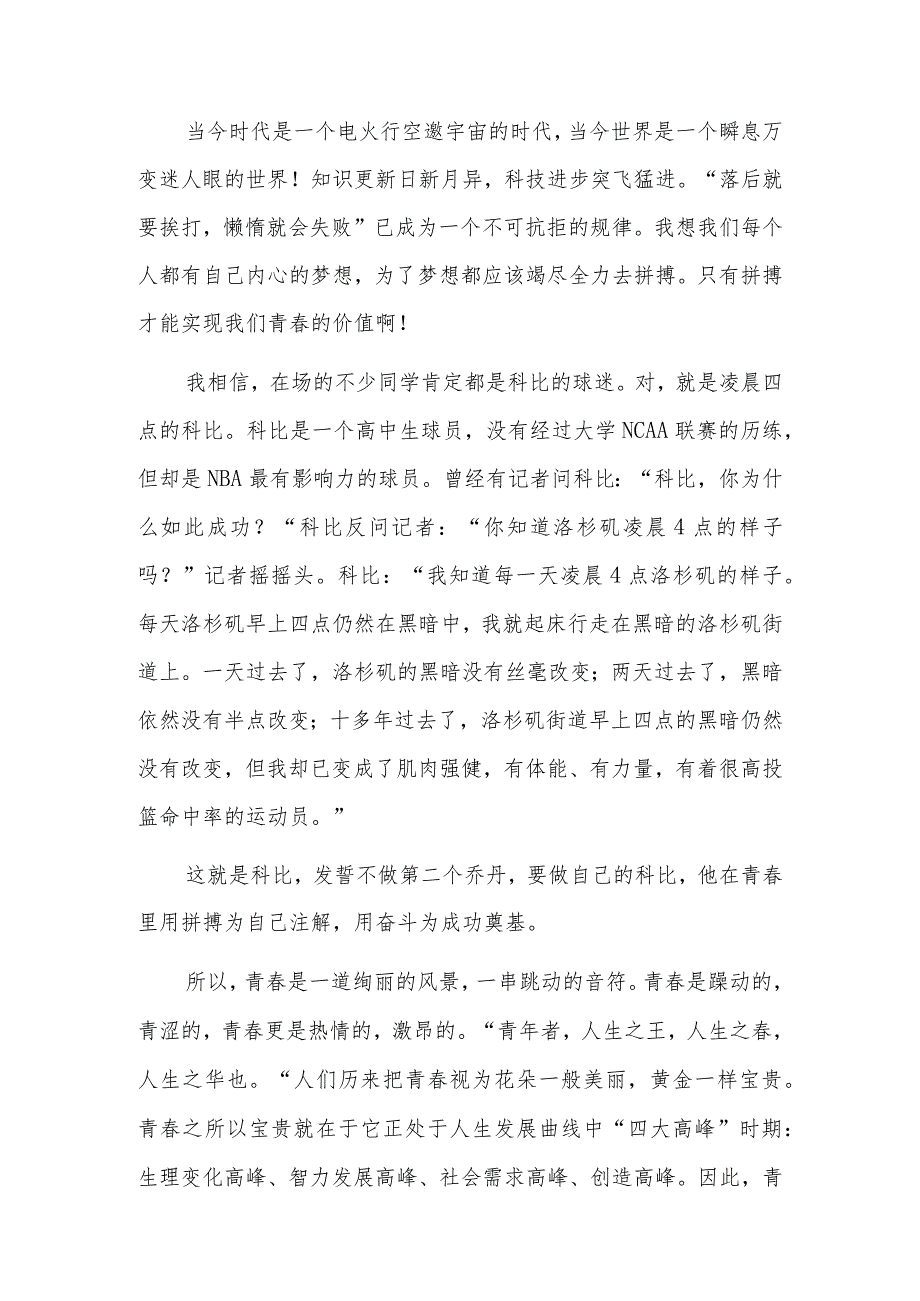 当今时代是一个电火行空遨宇宙的时代，当今世界是一个瞬息万
变迷人眼的世界！知识更新日新月异，科技进步突飞猛进。“落后就
要挨打，懒惰就会失败”已成为一个不可抗拒的规律。我想我们每个
人都有自己内心的梦想，为了梦想都应该竭尽全力去拼搏。只有拼搏
才能实现我们青春的价值啊！
我相信，在场的不少同学肯定都是科比的球迷。对，就是凌晨四
点的科比。科比是一个高中生球员，没有经过大学 NCAA 联赛的历练，
但却是 NBA 最有影响力的球员。曾经有记者问科比：“科比，你为什
么如此成功？“科比反问记者：“你知道洛杉矶凌晨 4 点的样子
吗？”记者摇摇头。科比：“我知道每一天凌晨 4 点洛杉矶的样子。
每天洛杉矶早上四点仍然在黑暗中，我就起床行走在黑暗的洛杉矶街
道上。一天过去了，洛杉矶的黑暗没有丝毫改变；两天过去了，黑暗
依然没有半点改变；十多年过去了，洛杉矶街道早上四点的黑暗仍然
没有改变，但我却已变成了肌肉强健，有体能、有力量，有着很高投
篮命中率的运动员。”
这就是科比，发誓不做第二个乔丹，要做自己的科比，他在青春
里用拼搏为自己注解，用奋斗为成功奠基。
所以，青春是一道绚丽的风景，一串跳动的音符。青春是躁动的，
青涩的，青春更是热情的，激昂的。“青年者，人生之王，人生之春，
人生之华也。“人们历来把青春视为花朵一般美丽，黄金一样宝贵。
青春之所以宝贵就在于它正处于人生发展曲线中“四大高峰”时期：
生理变化高峰、智力发展高峰、社会需求高峰、创造高峰。因此，青